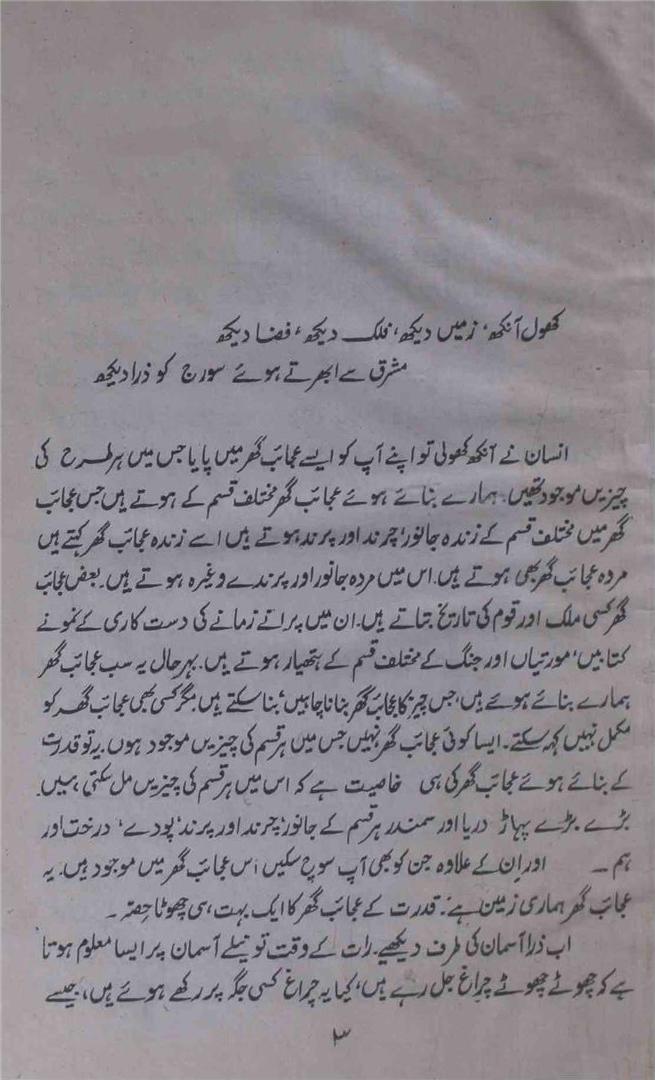 کھول آنکھ، زمیں دیکھ، فلک دیکھ، فضا دیکھ
مشرق سے ابھرتے ہوئے سورج کو ذرا دیکھ
انسان نے آنکھ کھولی تو اپنے آپ کو ایسے عجائب گھر میں پایا جس میں ہر طرح کی
چیزیں موجود تھیں۔ ہمارے بنائے ہوئے عجائب گھر مختلف قسم کے ہوتے ہیں جس عجائب
گھر میں مختلف قسم کے زندہ جانور، چرند اور پرند ہوتے ہیں اسے زندہ عجائب گھر کہتے ہیں
مردہ عجائب گھر بھی ہوتے ہیں۔ اس میں مردہ جانور اور پرندے وغیرہ ہوتے ہیں۔ بعض عجائب
گھر کسی ملک اور قوم کی تاریخ بتاتے ہیں۔ ان میں پرانے زمانے کی دست کاری کے نمونے
کتابیں، مورتیاں اور جنگ کے مختلف قسم کے ہتھیار ہوتے ہیں۔ بہرحال یہ سب عجائب گھر
ہمارے بنائے ہوئے ہیں، جس چیز کا عجائب گھر بنانا چاہیں، بنا سکتے ہیں مگر کسی بھی عجائب گھر کو
مکمل نہیں کہہ سکتے۔ ایسا کوئی عجائب گھر نہیں جس میں ہر قسم کی چیزیں موجود ہوں۔ یہ تو قدرت
کے بنائے ہوئے عجائب گھر کی ہی خاصیت ہے کہ اس میں ہر قسم کی چیزیں مل سکتی ہیں۔
بڑے بڑے پہاڑ دریا اور سمندر ہر قسم کے جانور، چرند اور پرند، پودے، درخت اور
ہم ــ اور اِن کے علاوہ جن کو بھی آپ سوچ سکیں اس عجائب گھر میں موجود ہیں۔ یہ
عجائب گھر ہماری زمین ہے۔ قدرت کے عجائب گھر کا ایک بہت ہی چھوٹا حصّہ۔
اب ذرا آسمان کی طرف دیکھیے۔ رات کے وقت تو نیلے آسمان پر ایسا معلوم ہوتا
ہے کہ چھوٹے چھوٹے چراغ جل رہے ہیں، کیا یہ چراغ کسی جگہ پر رکھے ہوئے ہیں، جیسے
۳